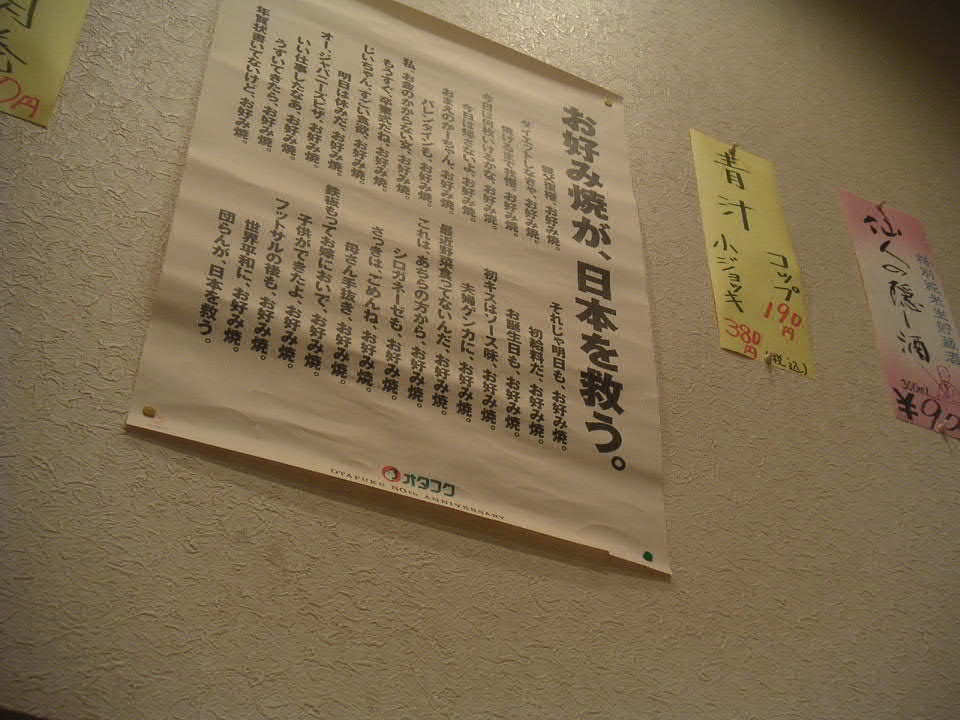 お好み焼が、日本を救う。
親父復権、お好み焼。
ダイエットしなくちゃ、お好み焼。
今日は何枚いけるかな、お好み焼。
今日は帰さないよ、お好み焼。
おまえのかーちゃん、お好み焼。
バレンタインも、お好み焼。
私、お金のかからない女、お好み焼。
もうすぐ、卒業式だね、お好み焼。
じいちゃん、すごい食欲、お好み焼。
明日は休みだ、お好み焼。
オー、ジャパニーズピザ、お好み焼。
いい仕事したなあ、お好み焼。
うずいてきたら、お好み焼。
年賀状書いてないけど、お好み焼。
それじゃ明日も、お好み焼。
初給料だ、お好み焼。
お誕生日も、お好み焼。
初キスはソース味、お好み焼。
夫婦ゲンカに、お好み焼。
最近野菜食ってないんだ、お好み焼。
これは、あちらの方から、お好み焼。
シロガネーゼも、お好み焼。
さっきは、ごめんね、お好み焼。
母さん手抜き、お好み焼。
鉄板もってお嫁においで、お好み焼。
子供ができたよ、お好み焼。
フットサルの後も、お好み焼。
世界平和に、お好み焼。
団らんが、日本を救う。
オタフク
OTAFUKU 80th ANNIVERSARY
0円
青汁
コップ 190円
小ジョッキ 380円
(税込)
仙人の隠し酒
300ml